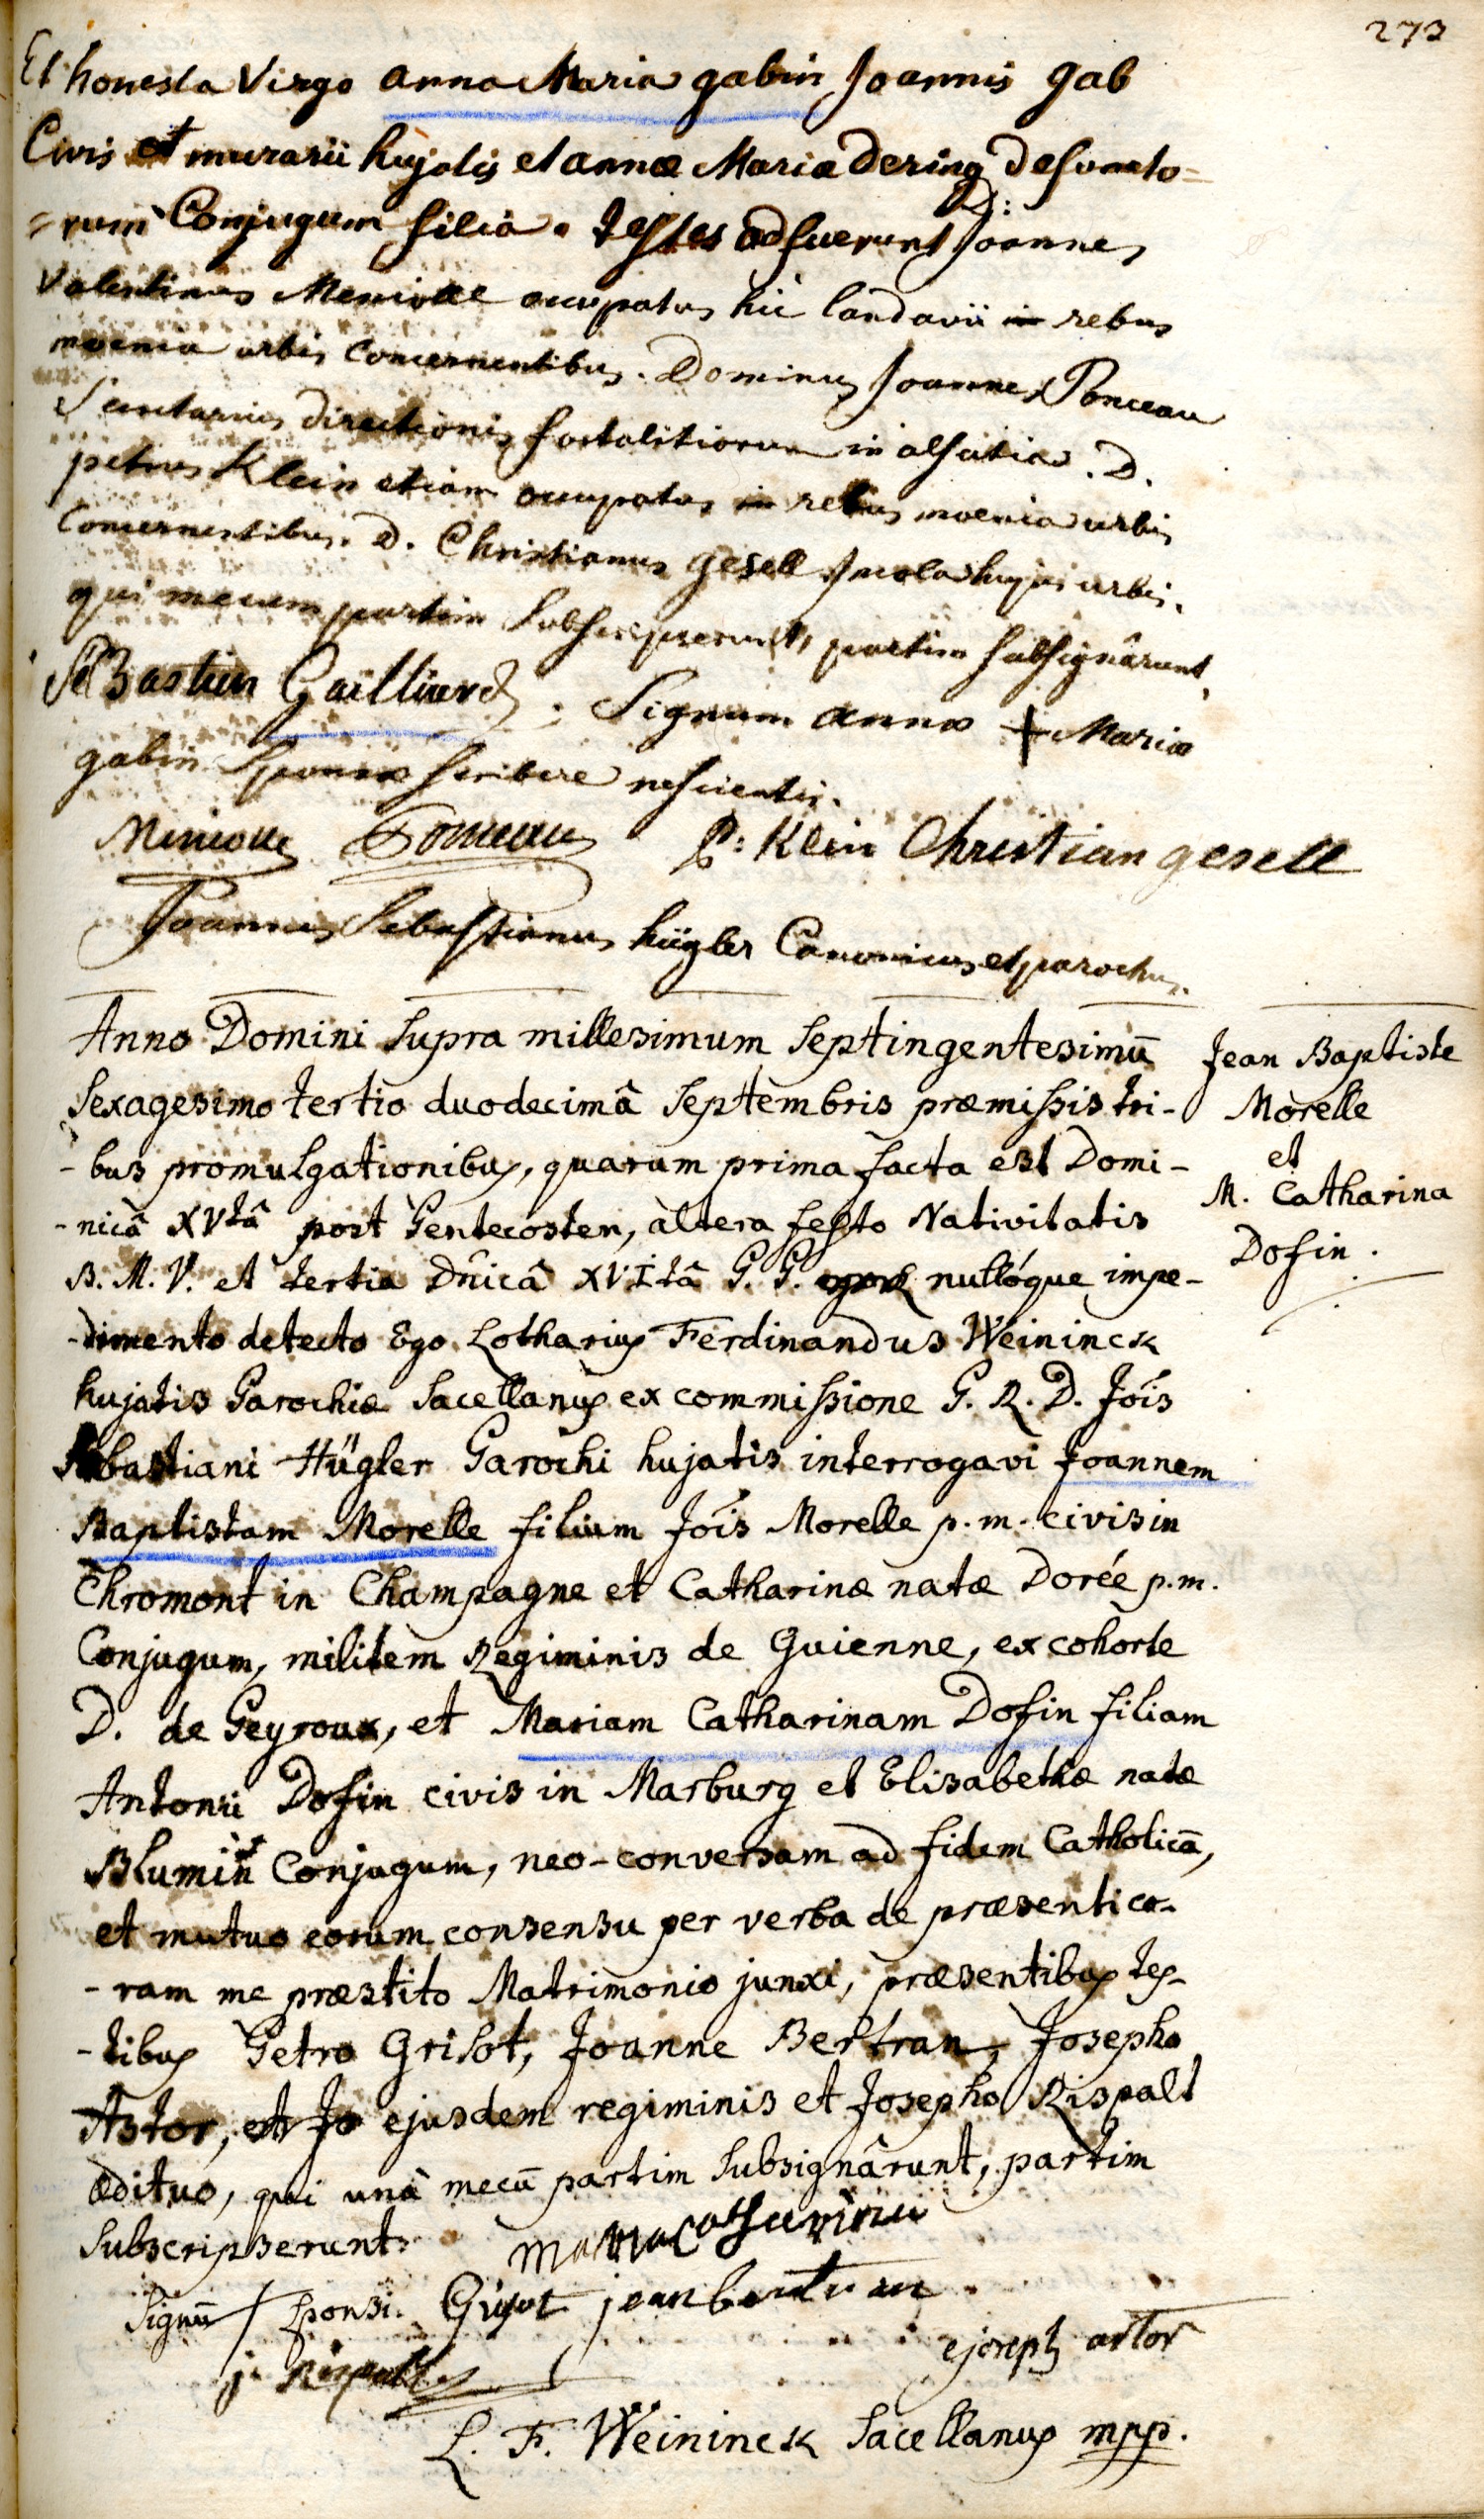 273
Et honesta Virgo anna Maria gabin Joannis gab
Civis et murarii hujatis et annæ Maria dering defuncto=
=rum Conjugum filia. testes adfuerunt D: Joannes
Valentinus Meniolle occupatus hic landavii in rebus
moenia urbis concernentibus. Dominus Joannes Ponceau
Secretarius directionis fortalitiorum in alsatia. D.
petrus Klein etiam occupatus in rebus moenia urbis
concernentibus. D. Christianus gesell Incola hujus urbis.
qui mecum partim subscripserunt, partim subsignârunt,
SeBastien Gailliard; Signum annæ + Mariæ
gabin Sponsæ scribere nescientis.
Meniolle Ponceau P: Klein Christian gesell
Joannes Sebastianus hügler Canonicus et parochus.
Anno Domini supra millesimum septingentesimū
sexagesimo tertio duodecimâ septembris præmissis tri-
-bus promulgationibus, quarum prima facta est Domi-
-nicâ XVtâ post Pentecosten, altera festo Nativitatis
B. M. V. et tertia Dn̄icâ XVItâ P. P. nullóque impe-
-dimento detecto Ego Lotharius Ferdinandus Weininck
hujatis Parochiæ Sacellanus ex commissione P. R. D. Jōis
Sebastiani Hügler Parochi hujatis interrogavi Joannem
Baptistam Morelle filium Jōis Morelle p. m. civis in
Chromont in Champagne et Catharinæ natæ Dorée p. m.
Conjugum, militem Regiminis de Guienne, ex cohorte
D. de Peyroux, et Mariam Catharinam Dofin filiam
Antonii Dofin civis in Marburg et Elisabethæ natæ
Blumin Conjugum, neo-conversam ad fidem Catholicā,
et mutuo eorum consensu per verba de præsenti co-
-ram me præstito Matrimonio junxi, præsentibus tes-
-tibus Petro Grisot, Joanne Bertran, Josepho
Astor, et Jo ejusdem regiminis et Josepho Rispalt
ædituo, qui unà mecū partim subsignârunt, partim
subscripserunt. maria Catharina
Signū / sponsi. jean bertran
ejoseph astor
j. Rispalt
L. F. Weininck Sacellanus mpp.
Jean Baptiste
Morelle
et
M. Catharina
Dofin.